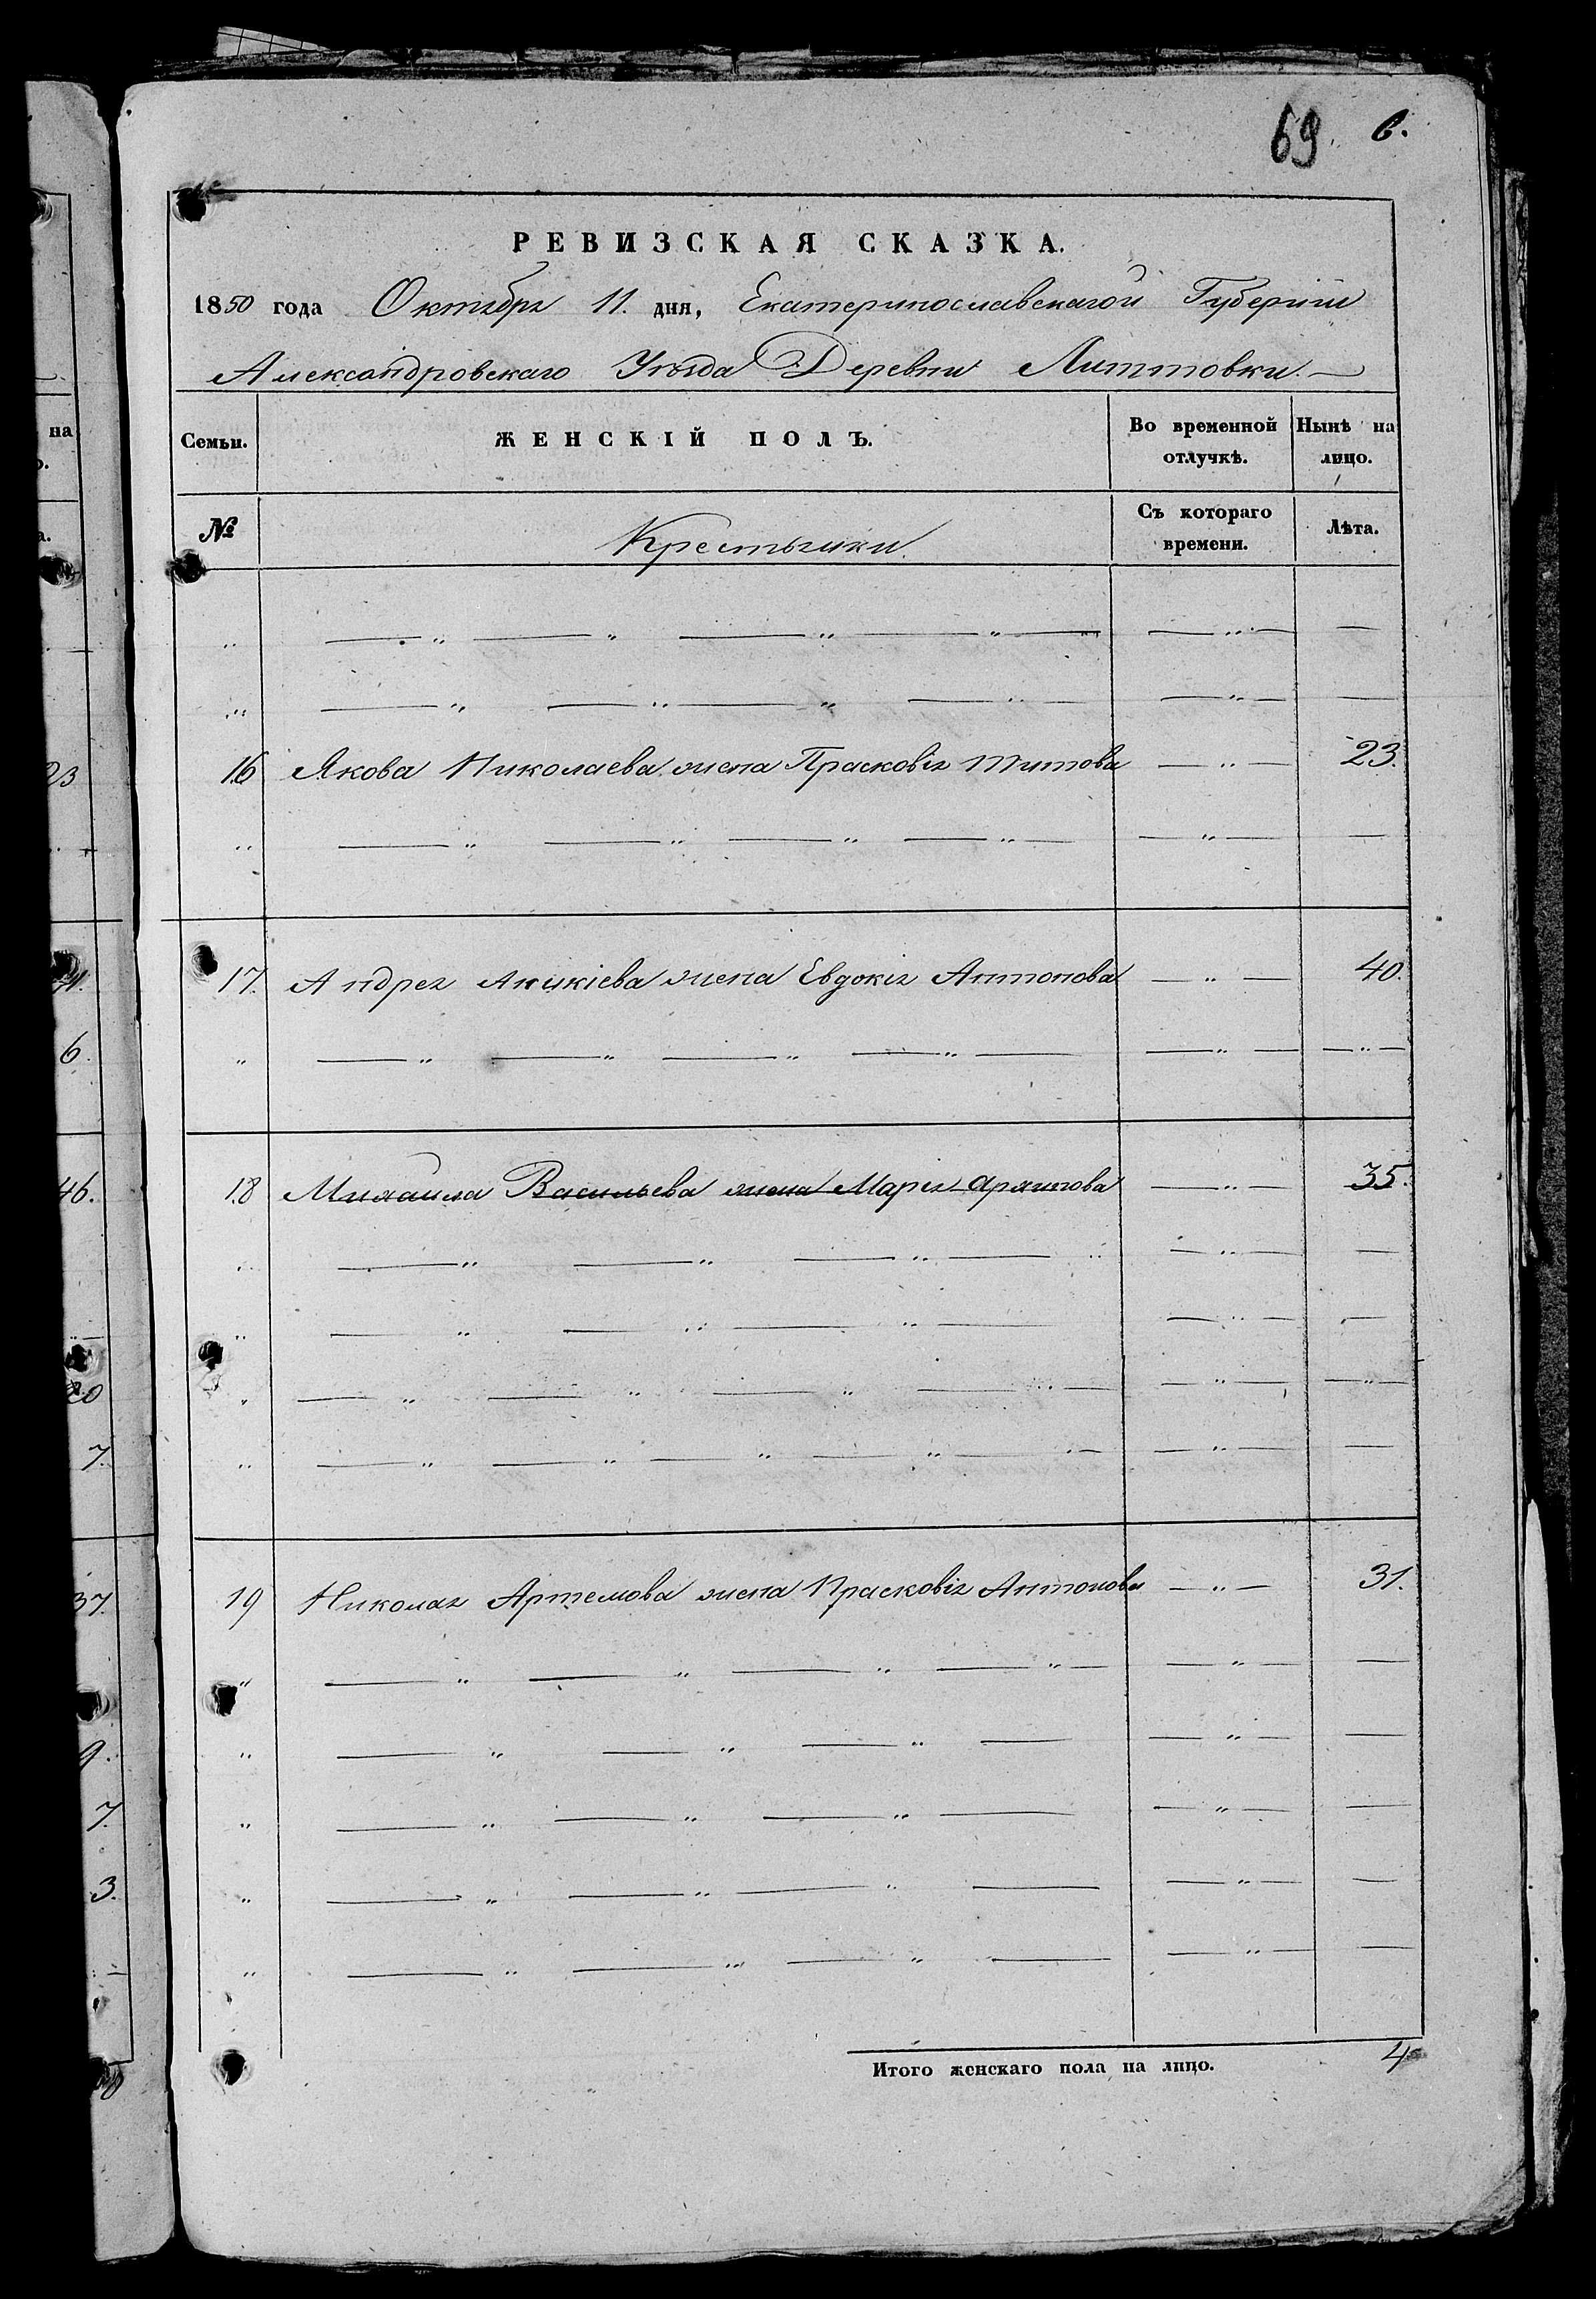 69. 6.
РЕВИЗСКАЯ СКАЗКА.
1850 года Октября 11. дня, Екатеринославской Губернии
Александровскаго Уѣзда Деревни Литтовки.
Семьи. ЖЕНСКІЙ ПОЛЪ. Во временной отлучкѣ. Нынѣ на лицо.
№ Крестьянки Съ котораго времени. Лѣта.
16 Якова Николаева жена Прасковія Титова — „ — 23.
17. Андрея Аникіева жена Евдокія Антонова — „ — 40.
18 Михайла Васильева жена Марія Архипова — „ — 35.
19 Николая Артемова жена Прасковія Антонова — „ — 31.
Итого женскаго пола на лицо. 4
на
23
6.
46.
20
7.
37.
9.
7.
3.